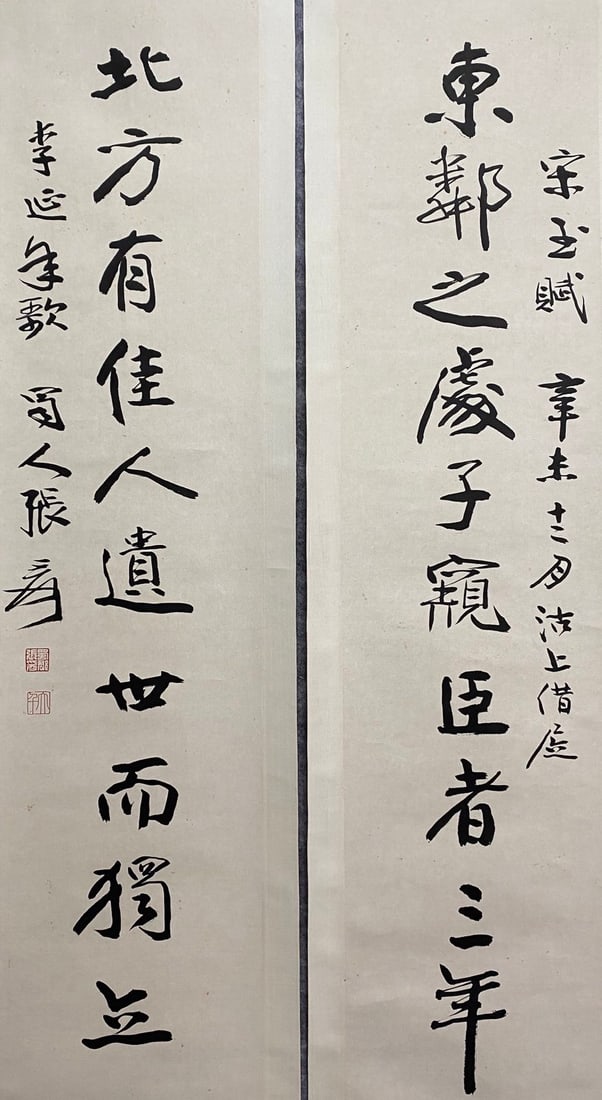 宋玉賦 辛未十二月沽上借居
東鄰之處子窺臣者三年
北方有佳人遺世而獨立
李延年歌 蜀人張爰